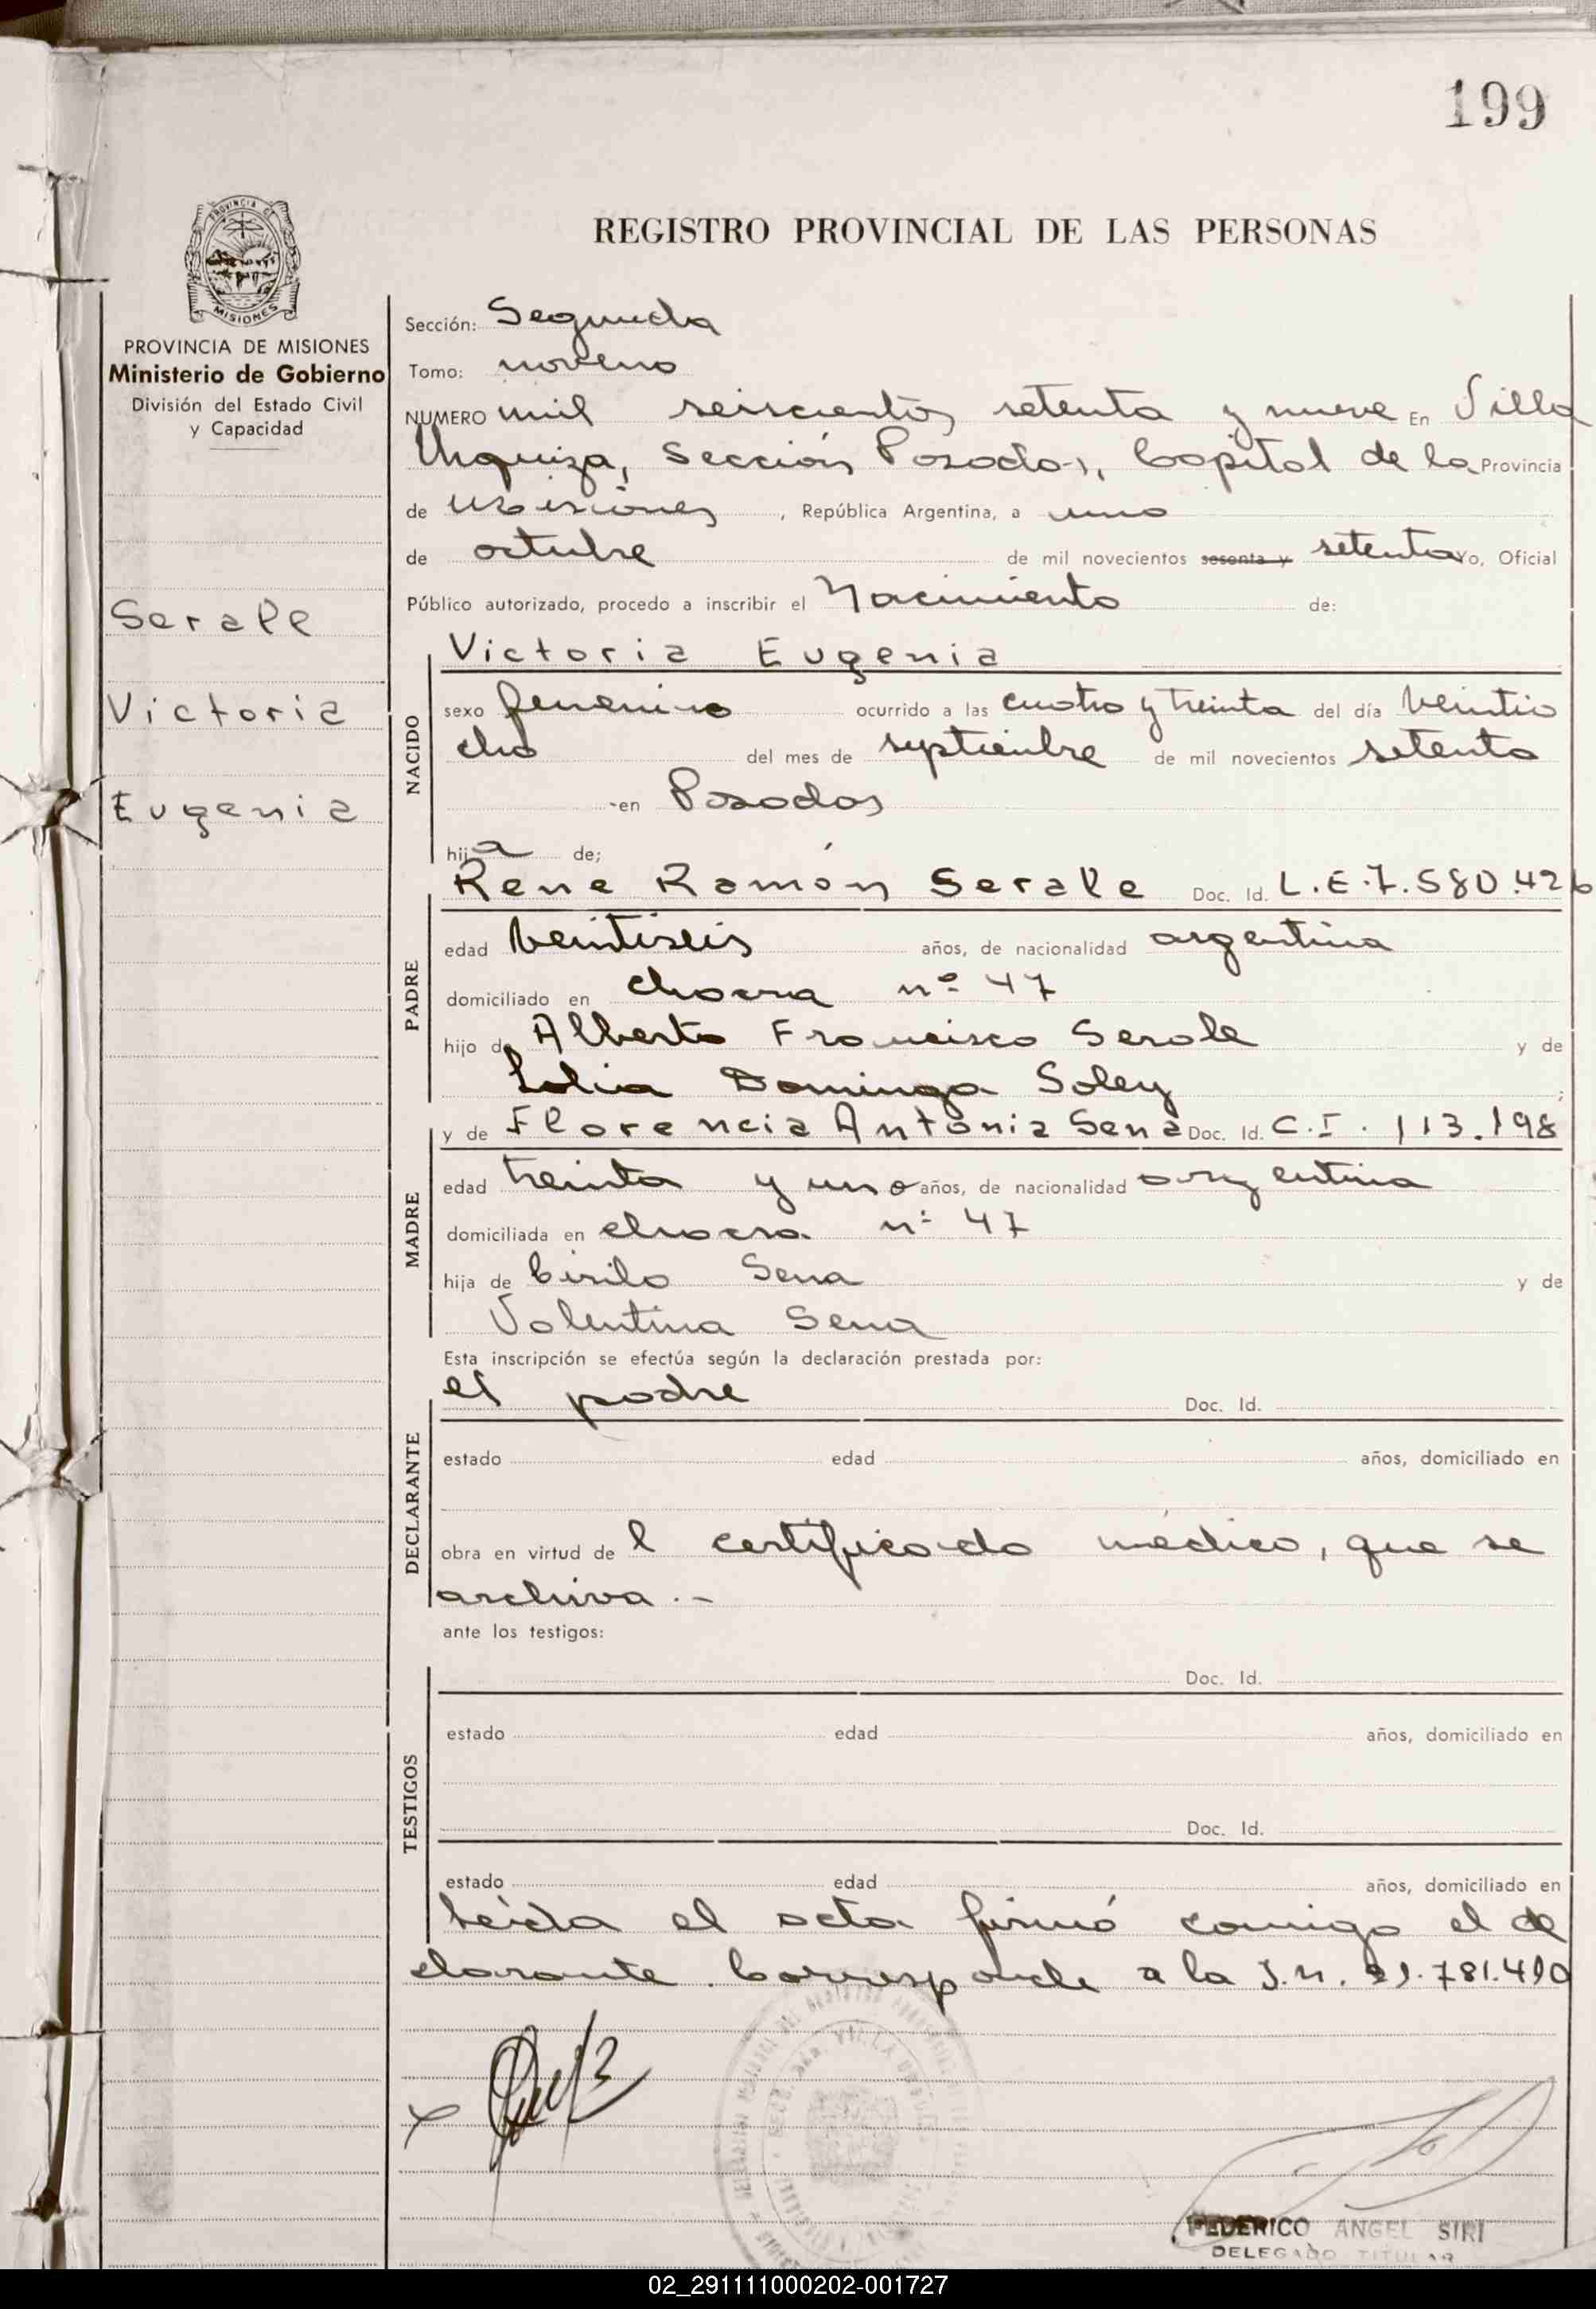 199
REGISTRO PROVINCIAL DE LAS PERSONAS
PROVINCIA DE
MISIONES
PROVINCIA DE MISIONES
Ministerio de Gobierno
División del Estado Civil
y Capacidad
Serale
Victoria
Eugenia
Sección: Segunda
Tomo: noveno
NUMERO mil seiscientos setenta y nueve En Villa
Urquiza, Sección Posadas, Capital de la Provincia
de Misiones, República Argentina, a uno
de octubre de mil novecientos sesenta y setenta Yo, Oficial
Público autorizado, procedo a inscribir el Nacimiento de:
Victoria Eugenia
NACIDO
sexo femenino ocurrido a las cuatro y treinta del día veintio
cho del mes de septiembre de mil novecientos setenta
en Posadas
hija de;
René Ramón Serale Doc. Id. L.E.7.580.426
PADRE
edad veintiseis años, de nacionalidad argentina
domiciliado en chacra nº 47
hijo de Alberto Francisco Serale y de
Dominga Soley ;
y de Florencia Antonia Sena Doc. Id. C.I. 113.198
MADRE
edad treinta y uno años, de nacionalidad argentina
domiciliada en chacra nº 47
hija de Cirilo Sena y de
Valentina Sena
Esta inscripción se efectúa según la declaración prestada por:
el padre Doc. Id.
DECLARANTE
estado edad años, domiciliado en
obra en virtud de l certificado médico, que se
archiva.-
ante los testigos:
Doc. Id.
TESTIGOS
estado edad años, domiciliado en
Doc. Id.
estado edad años, domiciliado en
Leída el acta firmó comigo el de
clarante. Corresponde a la I.n. 21.781.410
FEDERICO ANGEL SIRI
DELEGADO TITULAR
02_291111000202-001727